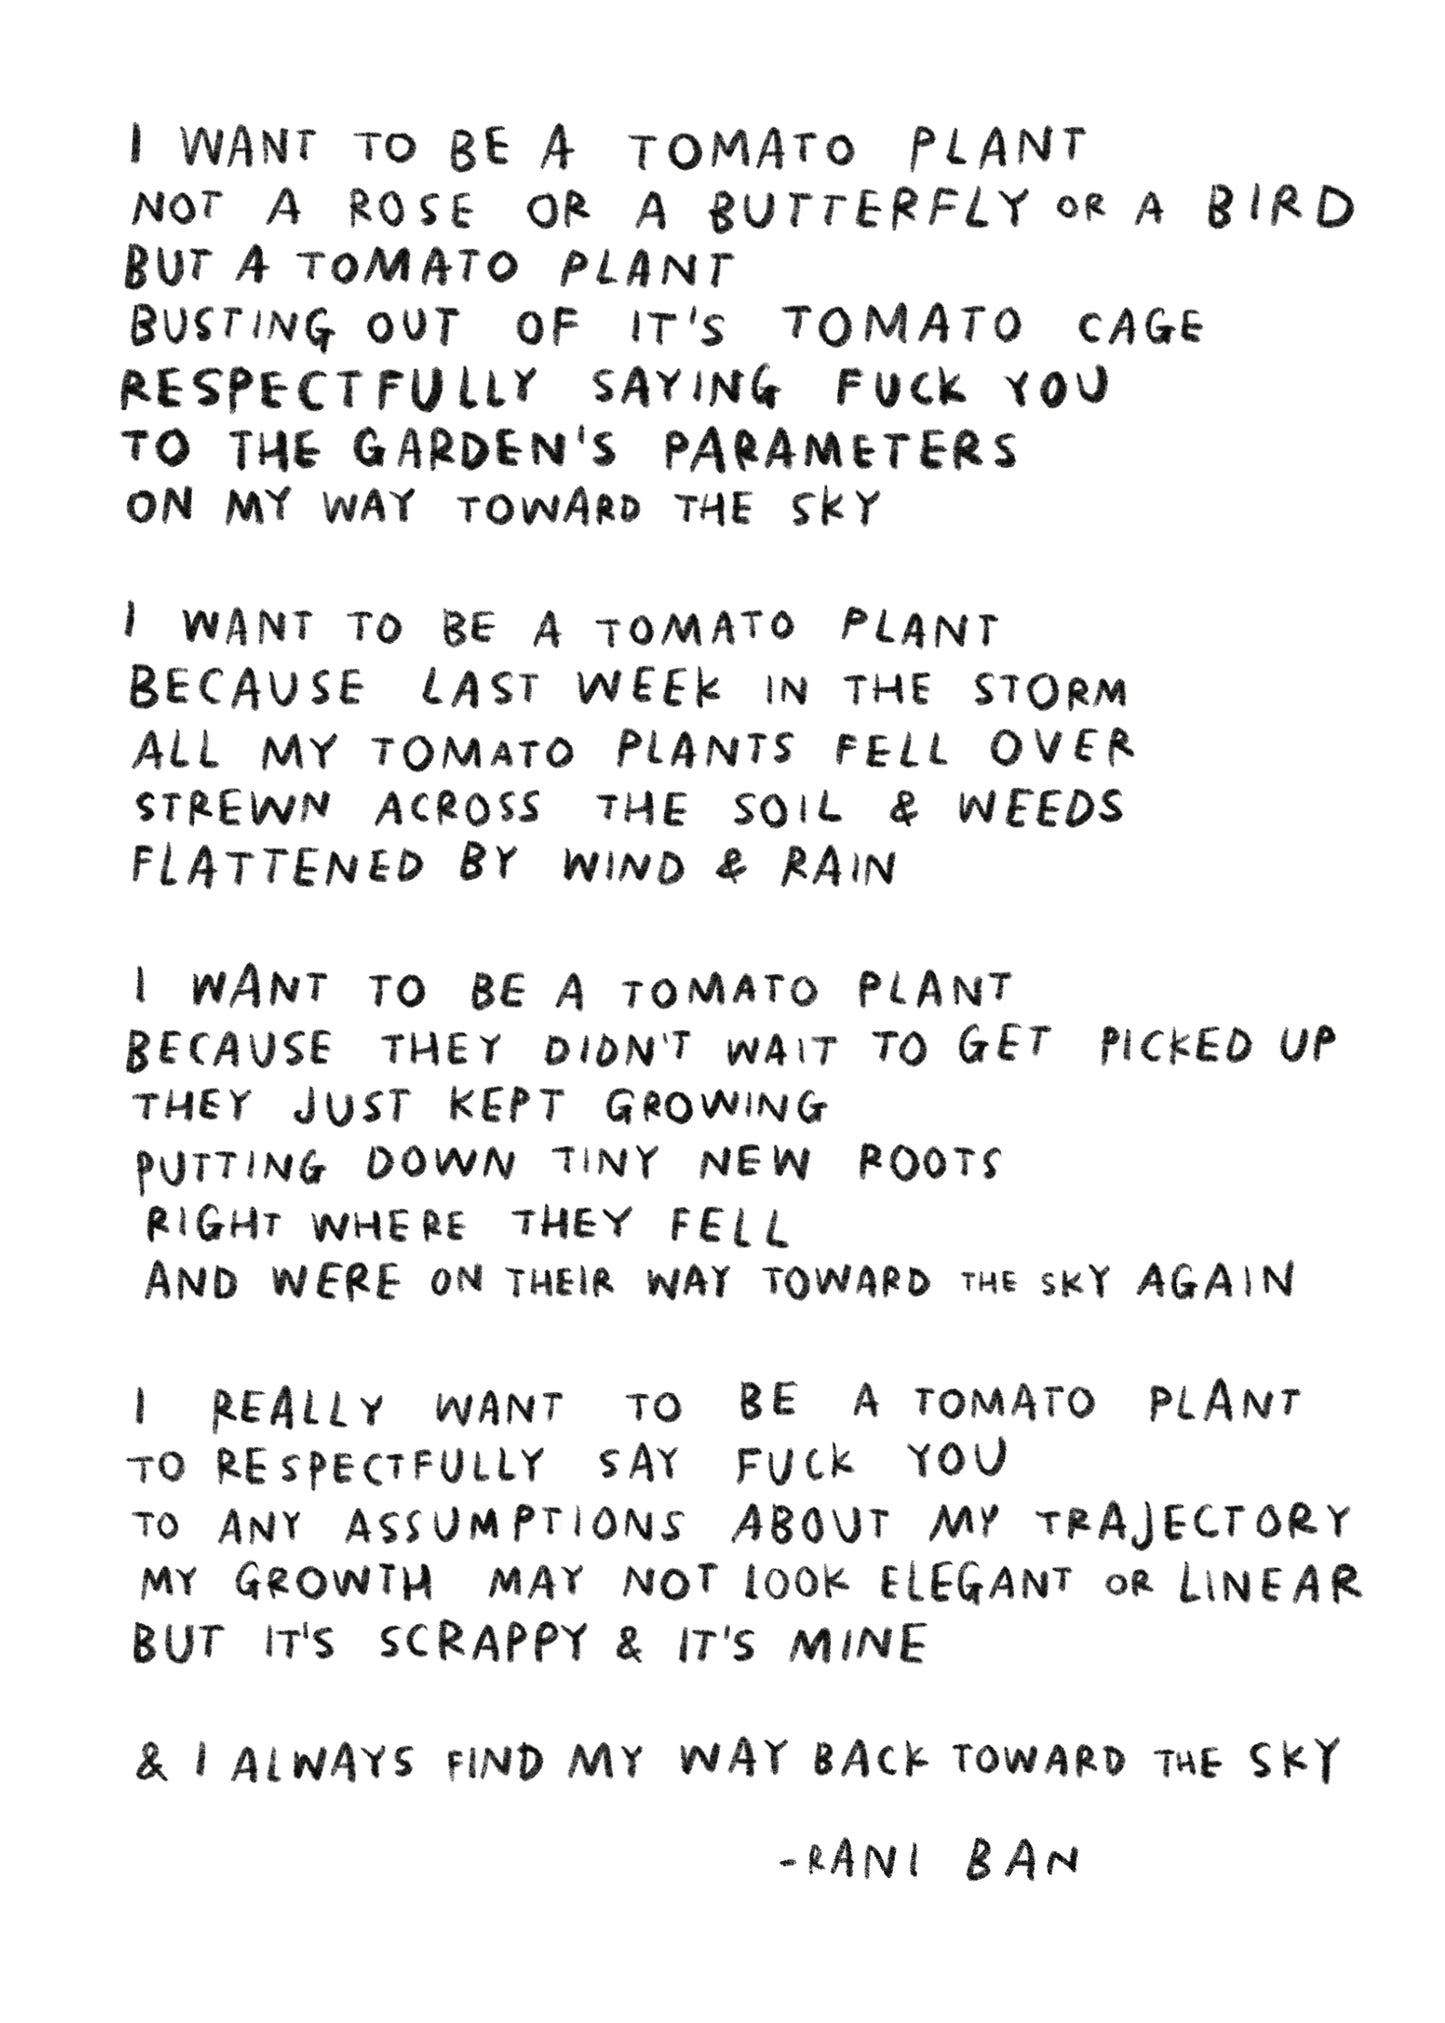 I WANT TO BE A TOMATO PLANT
NOT A ROSE OR A BUTTERFLY OR A BIRD
BUT A TOMATO PLANT
BUSTING OUT OF IT'S TOMATO CAGE
RESPECTFULLY SAYING FUCK YOU
TO THE GARDEN'S PARAMETERS
ON MY WAY TOWARD THE SKY
I WANT TO BE A TOMATO PLANT
BECAUSE LAST WEEK IN THE STORM
ALL MY TOMATO PLANTS FELL OVER
STREWN ACROSS THE SOIL & WEEDS
FLATTENED BY WIND & RAIN
I WANT TO BE A TOMATO PLANT
BECAUSE THEY DIDN'T WAIT TO GET PICKED UP
THEY JUST KEPT GROWING
PUTTING DOWN TINY NEW ROOTS
RIGHT WHERE THEY FELL
AND WERE ON THEIR WAY TOWARD THE SKY AGAIN
I REALLY WANT TO BE A TOMATO PLANT
TO RESPECTFULLY SAY FUCK YOU
TO ANY ASSUMPTIONS ABOUT MY TRAJECTORY
MY GROWTH MAY NOT LOOK ELEGANT OR LINEAR
BUT IT'S SCRAPPY & IT'S MINE
& I ALWAYS FIND MY WAY BACK TOWARD THE SKY
-RANI BAN